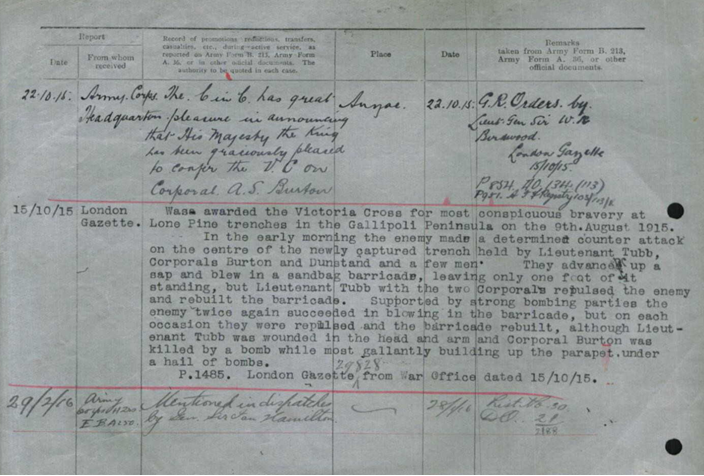 Report
Date
From whom received
Record of promotions, reductions, transfers,
casualties, etc., during active service, as
reported on Army Form B. 213, Army Form
A. 36, or in other official documents. The
authority to be quoted in each case.
Place
Date
Remarks
taken from Army Form B. 213,
Army Form A. 36, or other
official documents.
22.10.15. Army Corps. The C in C. has great Anzac. 22.10.15. G.R. Orders. by
Headquarters pleasure in announcing Lieut-Gen Sir W.R
that His Majesty the King Birdwood.
has been graciously pleased London Gazette
to confer the V.C on 15/10/15
Corporal A.S. Burton
15/10/15 London Wasa awarded the Victoria Cross for most conspicuous bravery at
Gazette. Lone Pine trenches in the Gallipoli Peninsula on the 9th.August 1915.
In the early morning the enemy made a determined counter attack
on the centre of the newly captured trench held by Lieutenant Tubb,
Corporals Burton and Dunstand and a few men. They advanced up a
sap and blew in a sandbag barricade, leaving only one foot of it
standing, but Lieutenant Tubb with the two Corporals repulsed the enemy
and rebuilt the barricade. Supported by strong bombing parties the
enemy twice again succeeded in blowing in the barricade, but on each
occasion they were repulsed and the barricade rebuilt, although Lieut-
enant Tubb was wounded in the head and arm and Corporal Burton was
killed by a bomb while most gallantly building up the parapet under
a hail of bombs.
29328
P.1485. London Gazette from War Office dated 15/10/15.
29/2/16 Army Mentioned in dispatches
by Gen. Sir Ian Hamilton